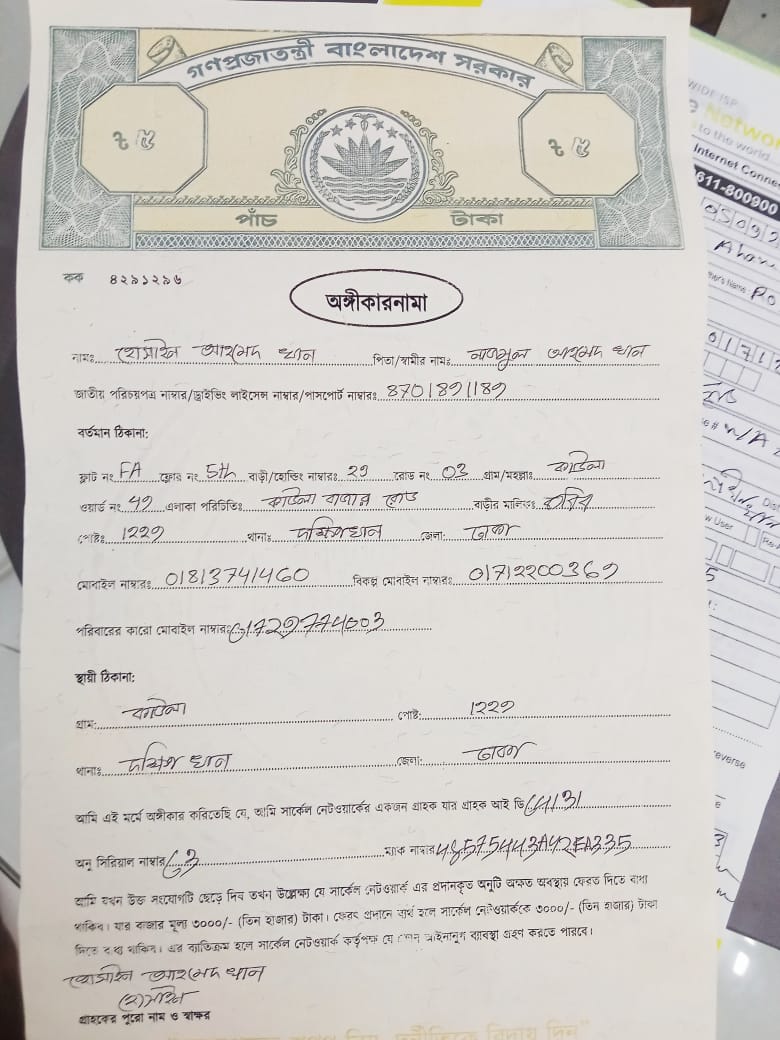 গণপ্রজাতন্ত্রী বাংলাদেশ সরকার
ট ৫ ট ৫
পাঁচ টাকা
কক ৪২৯১২৯৬
অঙ্গীকারনামা
নামঃ হোসাইন আহমেদ খান পিতা/স্বামীর নাম: আহমেদ খান
জাতীয় পরিচয়পত্র নাম্বার/ড্রাইভিং লাইসেন্স নাম্বার/পাসপোর্ট নাম্বারঃ 8701891189
বর্তমান ঠিকানা:
ফ্লাট নং FA ফ্লোর নং 5th বাড়ী/হোল্ডিং নাম্বারঃ ২৯ রোড নং 03 গ্রাম/মহল্লাঃ কাওলা
ওয়ার্ড নং ৪৯ এলাকা পরিচিতিঃ কাওলা বাজার রোড বাড়ীর মালিকঃ
পোষ্টঃ ১২২৯ থানাঃ দক্ষিণখান জেলা: ঢাকা
মোবাইল নাম্বারঃ 01813741460 বিকল্প মোবাইল নাম্বারঃ 01712200369
পরিবারের কারো মোবাইল নাম্বারঃ
স্থায়ী ঠিকানা:
গ্রাম: কাওলা পোষ্ট: ১২২৯
থানাঃ দক্ষিণ খান জেলা: ঢাকা
আমি এই মর্মে অঙ্গীকার করিতেছি যে, আমি সার্কেল নেটওয়ার্কের একজন গ্রাহক যার গ্রাহক আই ডি
অনু সিরিয়াল নাম্বার ম্যাক নাম্বার 48575443A42FA335
আমি যখন উক্ত সংযোগটি ছেড়ে দিব তখন উল্লেক্ষ্য যে সার্কেল নেটওয়ার্ক এর প্রদানকৃত অনুটি অক্ষত অবস্থায় ফেরত দিতে বাধ্য
থাকিব। যার বাজার মূল্য ৩০০০/- (তিন হাজার) টাকা। ফেরৎ প্রদানে ব্যর্থ হলে সার্কেল নেটওয়ার্ককে ৩০০০/- (তিন হাজার) টাকা
দিতে বাধ্য থাকিব। এর ব্যতিক্রম হলে সার্কেল নেটওয়ার্ক কর্তৃপক্ষ যে কোন আইনানুগ ব্যবস্থা গ্রহণ করতে পারবে।
হোসাইন আহমেদ খান
হোসাইন
গ্রাহকের পুরো নাম ও স্বাক্ষর
WIDE ISP
Networ
to the world
Internet Conne
611-800900
0171
N/A
w User
everse